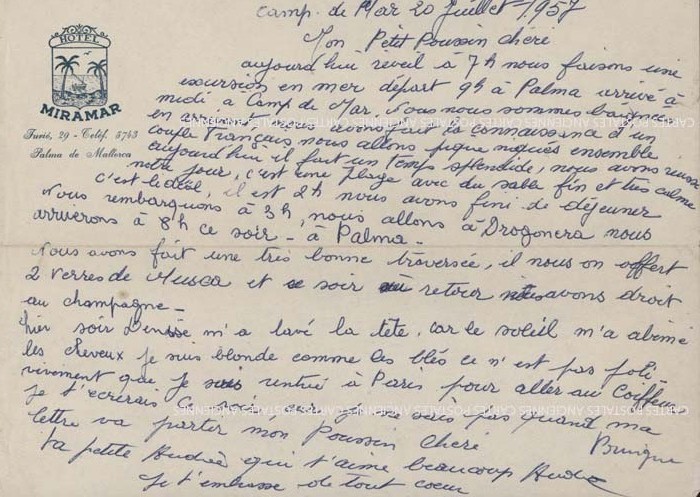 Camp. de Mar 20 Juillet 1957
Mon Petit Poussin chéri
HOTEL
MIRAMAR
29 - Teléf. 5743
Palma de Mallorca
aujourd'hui réveil à 7h nous faisons une
excursion en mer départ 9h à Palma arrivé à
midi a Camp de Mar. Nous nous sommes
en avons fait la connaissance d'un
couple Français nous allons pique niqués ensemble
aujourd'hui il fait un temps splendide, nous avons
notre jour, c'est une plage avec du sable fin et très calme
c'est idéal, il est 2h nous avons fini de déjeuner
Nous rembarquons à 3h, nous allons à Dragonera nous
arriverons à 8h ce soir - à Palma -
Nous avons fait une très bonne traversée, il nous on offert
2 verres de Musca et ce soir au retour nous avons droit
au champagne -
hier soir Denise m'a lavé la tête, car le soleil m'a abimé
les cheveux je suis blonde comme les blés ce n'est pas joli
vivement que je suis rentré à Paris pour aller au Coiffeur
je t'ecrirais ce soir car je ne sais pas quand ma
lettre va partir mon Poussin chéri
ta petite qui t'aime beaucoup
Je t'embrasse de tout coeur
CARTES POSTALES ANCIENNES CARTES POSTALES ANCIENNES CARTES POSTALES